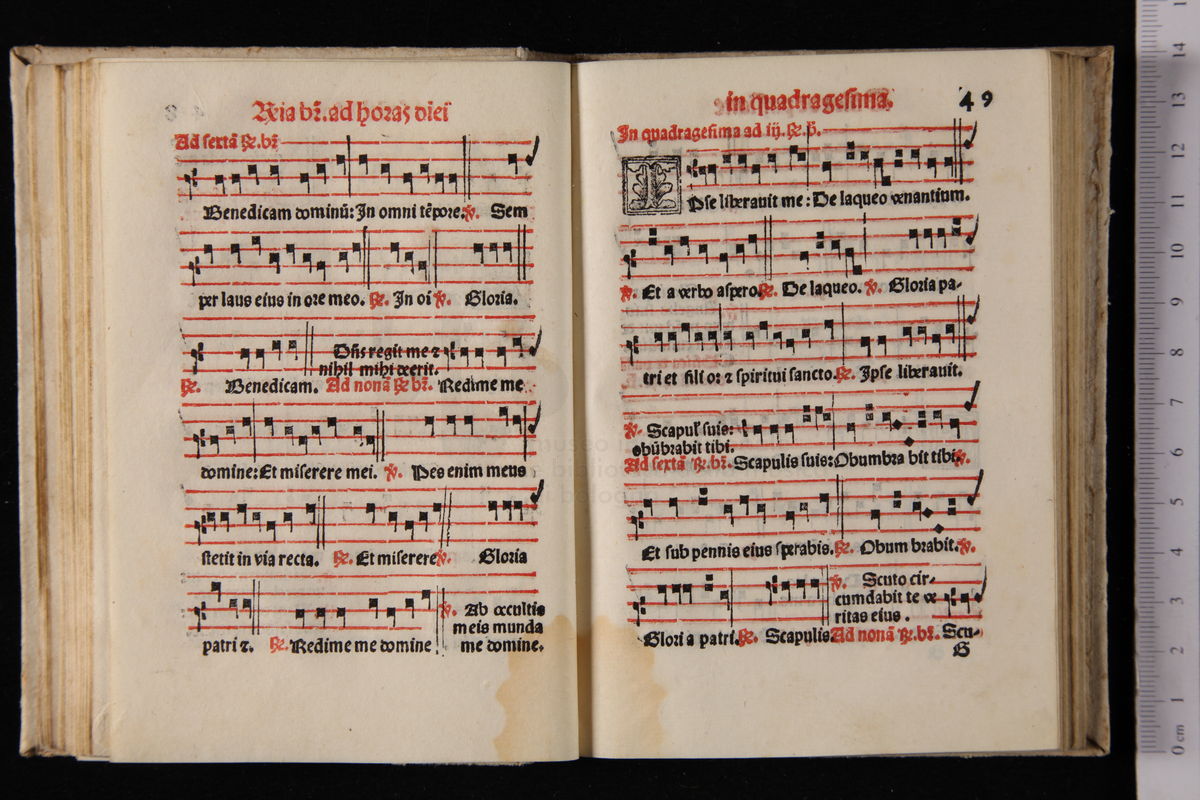 R̃ia br̃. ad horas diei
Ad sextã ℟. br̃
Benedicam dominũ: In omni tẽpore. ℣. Sem
per laus eius in ore meo. ℟. In oi ℣. Gloria.
Dñs regit me ⁊
nihil mihi deerit.
℟. Benedicam. Ad nonã ℟. br̃. Redime me
domine: Et miserere mei. ℣. Pes enim meus
stetit in via recta. ℟. Et miserere ℣. Gloria
℣. Ab occultis
meis munda
patri ⁊. ℟. Redime me domine me domine.
in quadragesima.
49
In quadragesima ad iij. ℟. b̃.
Ipse liberauit me: De laqueo venantium.
℣. Et a verbo aspero. ℟. De laqueo. ℣. Gloria pa-
tri et filio: ⁊ spiritui sancto. ℟. Ipse liberauit.
℣. Scapuł suis:
obũbrabit tibi.
Ad sextã ℟. br̃. Scapulis suis: Obumbra bit tibi. ℣.
Et sub pennis eius sperabis. ℟. Obumbrabit. ℣.
℣. Scuto cir-
cumdabit te ve
ritas eius.
Gloria patri. ℟. Scapulis Ad nonã ℟. br̃. Scu-
G
museo
0 cm 1 2 3 4 5 6 7 8 9 10 11 12 13 14